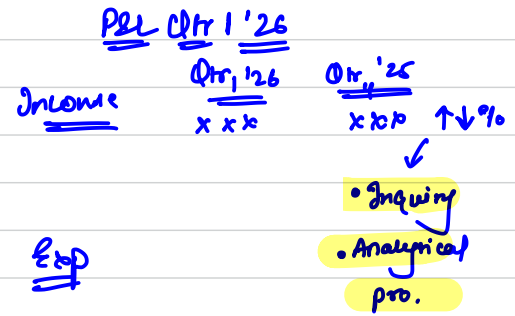 P&L Qtr 1 '26
Qtr, '26 Qtr,, '25
Income x x x x x x ↑↓%
• Inquiry
Exp • Analytical
pro.